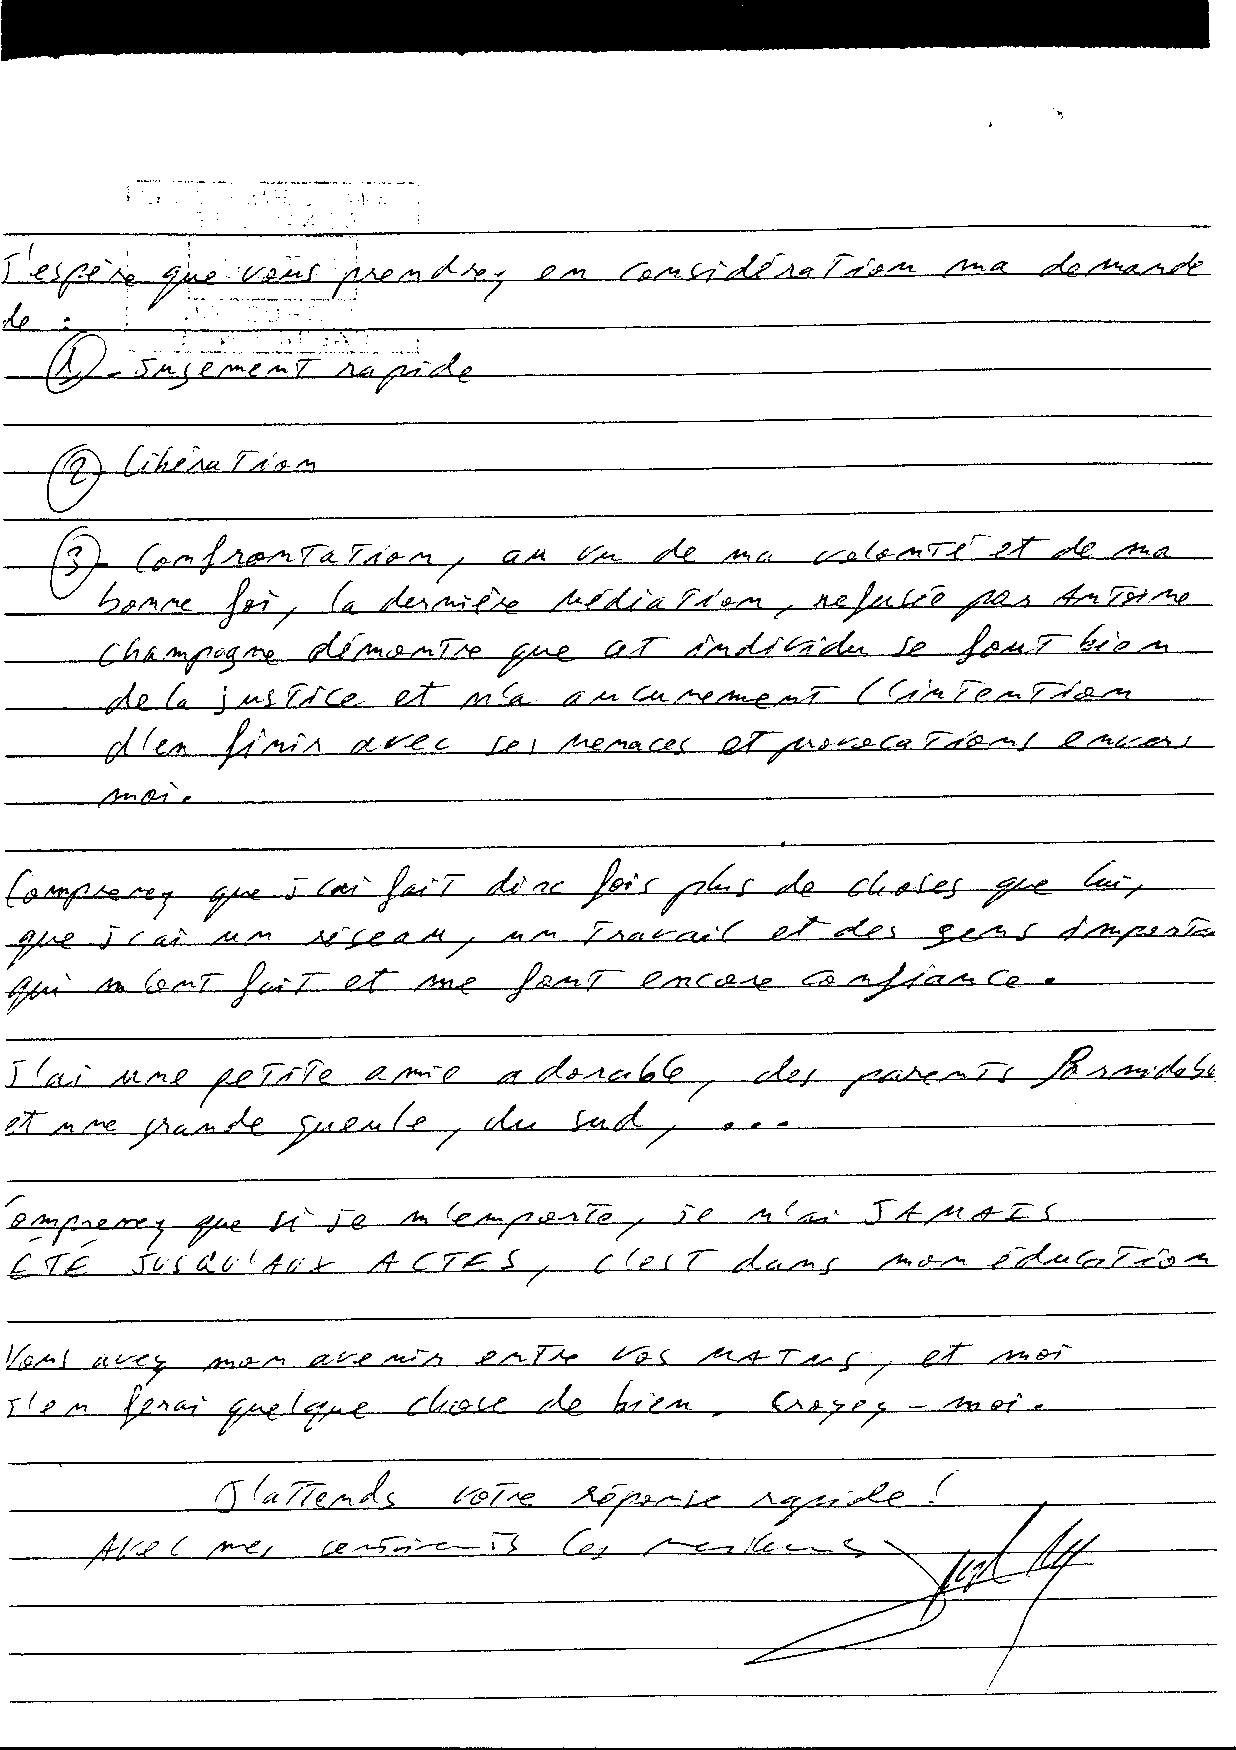 J'espère que vous prendrez en considération ma demande
de :
1 - Jugement rapide
2 Libération
3 - Confrontation, au vu de ma volonté et de ma
bonne foi, la dernière médiation, refusée par Antoine
Champagne démontre que cet individu se fout bien
de la justice et n'a aucunement l'intention
d'en finir avec ses menaces et provocations envers
moi.
Comprenez que j'ai fait dix fois plus de choses que lui,
que j'ai un réseau, un travail et des gens importa
qui m'ont fait et me font encore confiance.
J'ai une petite amie adorable, des parents formidable
et une grande gueule, du sud, ...
Comprenez que si je m'emporte, je n'ai JAMAIS
ÉTÉ JUSQU'AUX ACTES, c'est dans mon éducation
Vous avez mon avenir entre vos MAINS, et moi
j'en ferai quelque chose de bien. Croyez-moi.
J'attends votre réponse rapide !
Avec mes sentiments les meilleurs